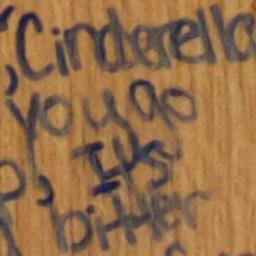 "Cinderella
, you go
p, It's
bitter